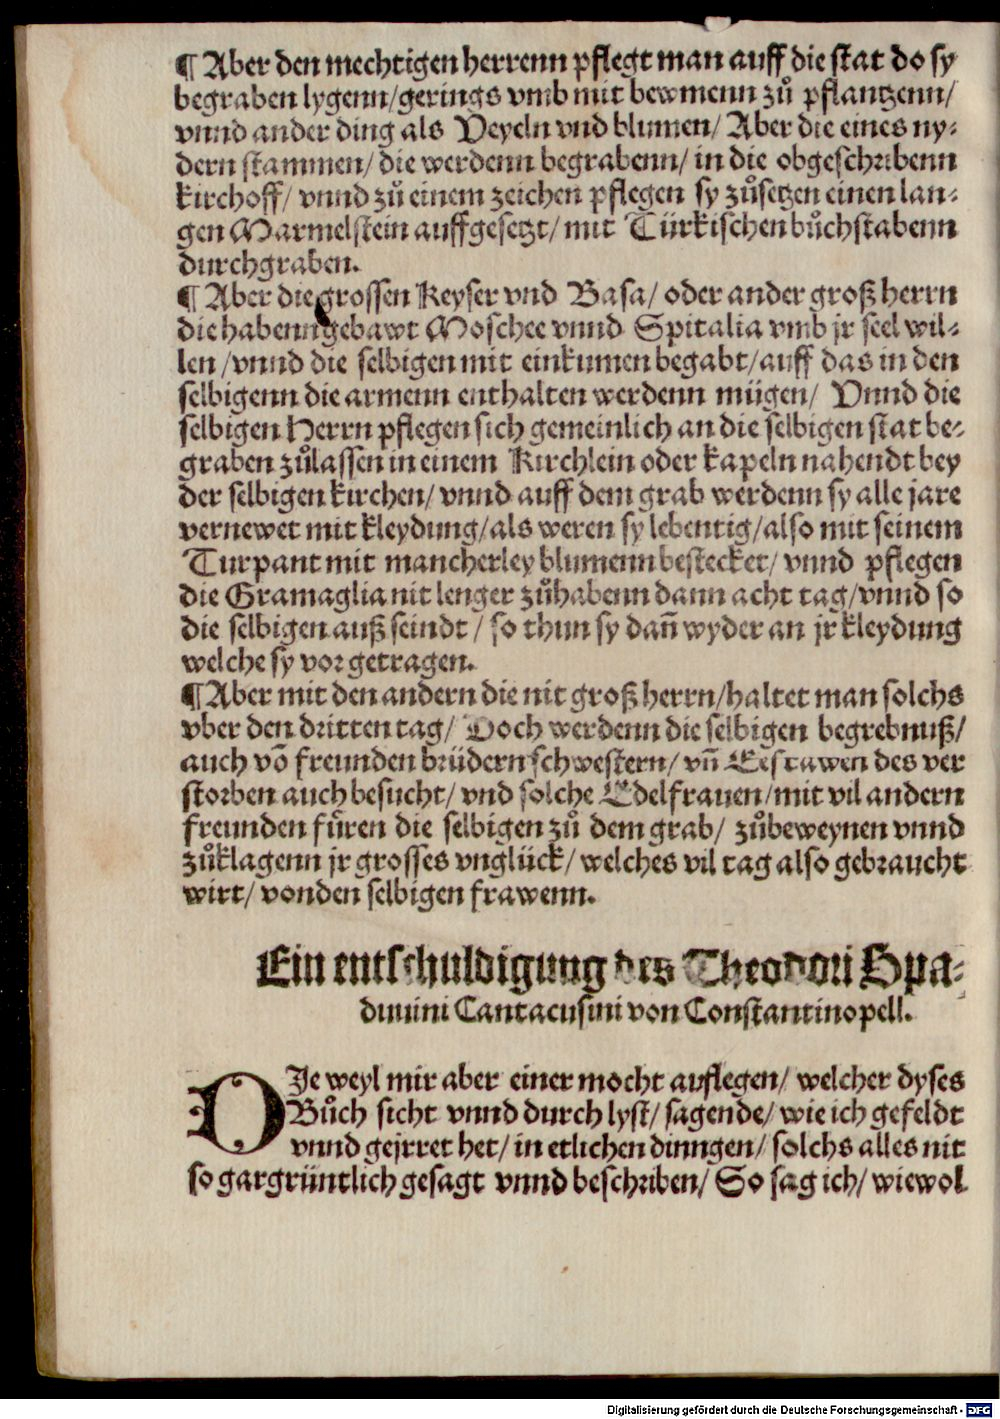 ¶ Aber den mechtigen herrenn pflegt man auff die stat do sy
begraben lygenn/gerings vmb mit bewmenn zů pflantzenn/
vnnd ander ding als Veyeln vnd blumen/ Aber die eines ny⸗
dern stammen/ die werdenn begrabenn/ in die obgeschribenn
kirchoff/ vnnd zů einem zeichen pflegen sy zůsetzen einen lan⸗
gen Marmelstein auffgesetzt/ mit Türkischen bůchstabenn
durchgraben.
¶ Aber die grossen Keyser vnd Basa/ oder ander groß herrn
die habenn gebawt Moschee vnnd Spitalia vmb jr seel wil⸗
len /vnnd die selbigen mit einkumen begabt/auff das in den
selbigenn die armenn enthalten werdenn mügen/ Vnnd die
selbigen Herrn pflegen sich gemeinlich an die selbigen stat be⸗
graben zůlassen in einem Kirchlein oder kapeln nahendt bey
der selbigen kirchen/ vnnd auff dem grab werdenn sy alle jare
vernewet mit kleydung/als weren sy lebentig/also mit seinem
Turpant mit mancherley blumenn bestecket/ vnnd pflegen
die Gramaglia nit lenger zůhabenn dann acht tag/vnnd so
die selbigen auß seindt / so thun sy dañ wyder an jr kleydung
welche sy vor getragen.
¶ Aber mit den andern die nit groß herrn/haltet man solchs
vber den dritten tag/ Doch werdenn die selbigen begrebnuß/
auch võ freunden brüdern schwestern/ vñ Eefrawen des ver
storben auch besucht/ vnd solche Edelfrauen/mit vil andern
freunden fůren die selbigen zů dem grab/ zůbeweynen vnnd
zůklagenn jr grosses vnglück/ welches vil tag also gebraucht
wirt/ von den selbigen frawenn.
Ein entschuldigung des Theodori Spa⸗
duuini Cantacusini von Constantinopell.
DJe weyl mir aber einer mocht auflegen/ welcher dyses
Bůch sicht vnnd durch lyst/ sagende/ wie ich gefeldt
vnnd gejrret het/ in etlichen dinngen/ solchs alles nit
so gar grüntlich gesagt vnnd beschriben/ So sag ich/ wiewol
Digitalisierung gefördert durch die Deutsche Forschungsgemeinschaft - DFG